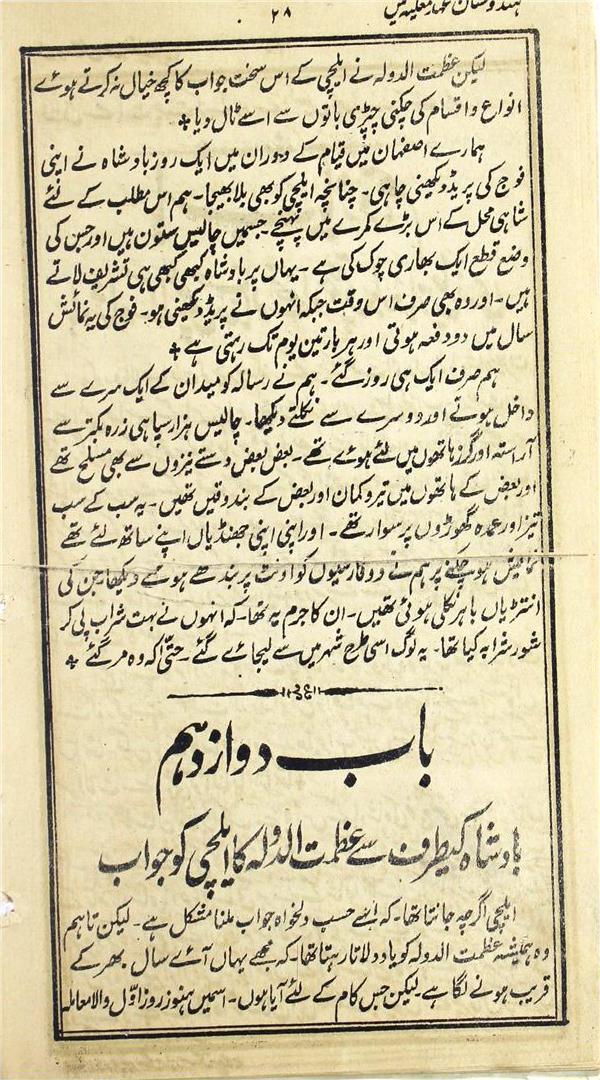 ہندوستان عہد مغلیہ میں
۲۸
لیکن عظمت الدولہ نے ایلچی کے اس سخت جواب کا کچھ خیال نہ کرتے ہوئے
انواع واقسام کی چکنی چپڑی باتوں سے اسے ٹال دیا +
ہمارے اصفہان میں قیام کے دوران میں ایک روز بادشاہ نے اپنی
فوج کی پریڈ دیکھنی چاہی۔ چنانچہ ایلچی کو بھی بلا بھیجا۔ ہم اس مطلب کے لئے
شاہی محل کے اس بڑے کمرے میں پہنچے۔ جسمیں چالیس ستون ہیں اور جس کی
وضع قطع ایک بھاری چوک کی ہے۔ یہاں پر بادشاہ کبھی کبھی ہی تشریف لاتے
ہیں۔ اور وہ بھی صرف اس وقت جبکہ انہوں نے پریڈ دیکھنی ہو۔ فوج کی یہ نمائش
سال میں دو دفعہ ہوتی اور ہر بار تین یوم تک رہتی ہے +
ہم صرف ایک ہی روز گئے۔ ہم نے رسالہ کو میدان کے ایک سرے سے
داخل ہوتے اور دوسرے سے نکلتے دیکھا۔ چالیس ہزار سپاہی زرہ بکتر سے
آراستہ اور گرز ہاتھوں میں لئے ہوئے تھے۔ بعض بعض دستے نیزوں سے بھی مسلح تھے
اور بعض کے ہاتھوں میں تیر و کمان اور بعض کے بندوقیں تھیں۔ یہ سب کے سب
تیز اور عمدہ گھوڑوں پر سوار تھے۔ اور اپنی اپنی جھنڈیاں اپنے ساتھ لئے تھے
نمائش ہو چکنے پر ہم نے دو فارسیوں کو اونٹ پر بندھے ہوئے دیکھا جن کی
انتڑیاں باہر نکلی ہوئی تھیں۔ ان کا جرم یہ تھا۔ کہ انہوں نے بہت شراب پی کر
شور شرابہ کیا تھا۔ یہ لوگ اسی طرح شہر میں سے لیجائے گئے۔ حتّٰی کہ وہ مر گئے +
باب دوازدہم
بادشاہ کیطرف سے عظمت الدولہ کا ایلچی کو جواب
ایلچی اگرچہ جانتا تھا۔ کہ اسے حسب دلخواہ جواب ملنا مشکل ہے۔ لیکن تاہم
وہ ہمیشہ عظمت الدولہ کو یاد دلاتا رہتا تھا۔ کہ مجھے یہاں آئے سال بھر کے
قریب ہونے لگا ہے۔ لیکن جس کام کے لئے آیا ہوں۔ اسمیں ہنوز روز اوّل والا معاملہ